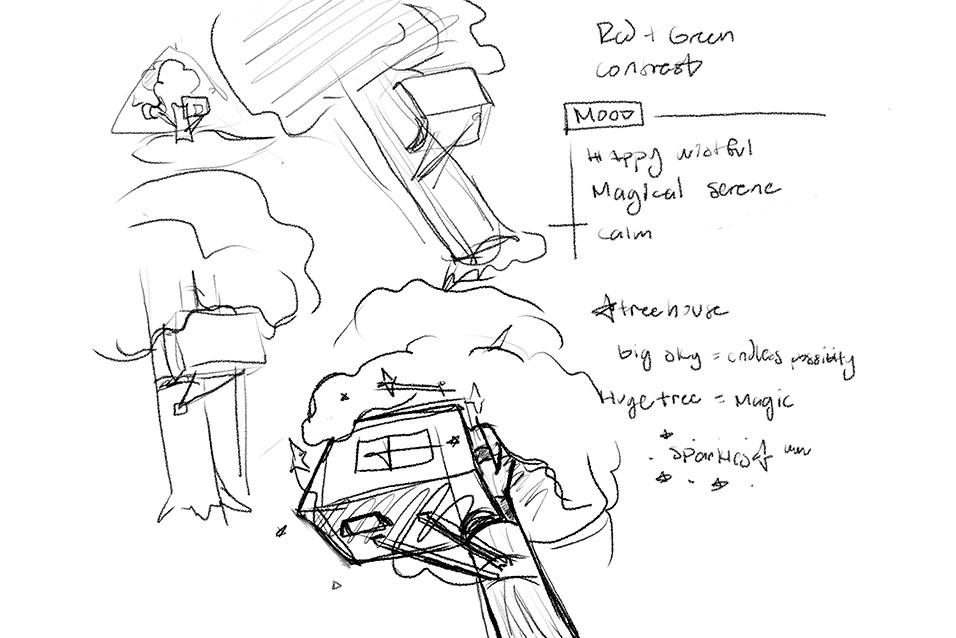 Red + Green
contrast
MOOD
Happy wistful
Magical serene
calm
treehouse
big sky = endless possiblity
Huge tree = Magic
sparkles